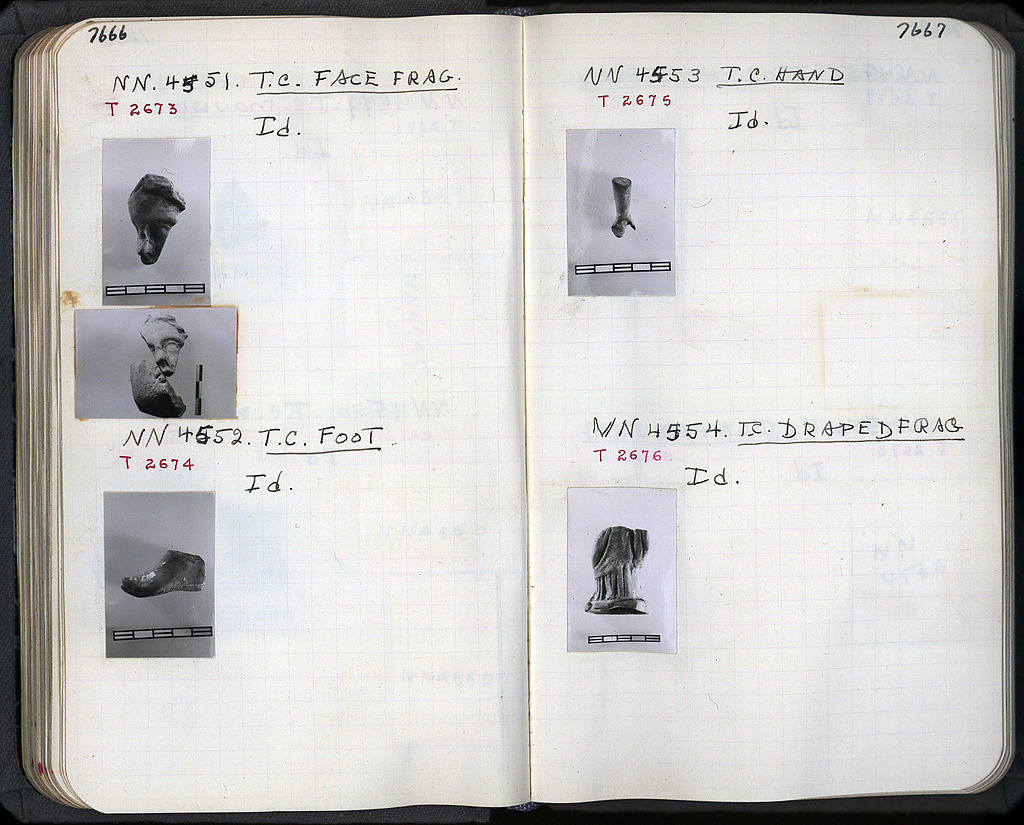 7666
NN. 4551. T.C. FACE FRAG.
T 2673
Id.
NN 4552. T.C. FOOT
T 2674
Id.
7667
NN 4553 T.C. HAND
T 2675
Id.
NN 4554. T.C. DRAPED FRAG
T 2676
Id.